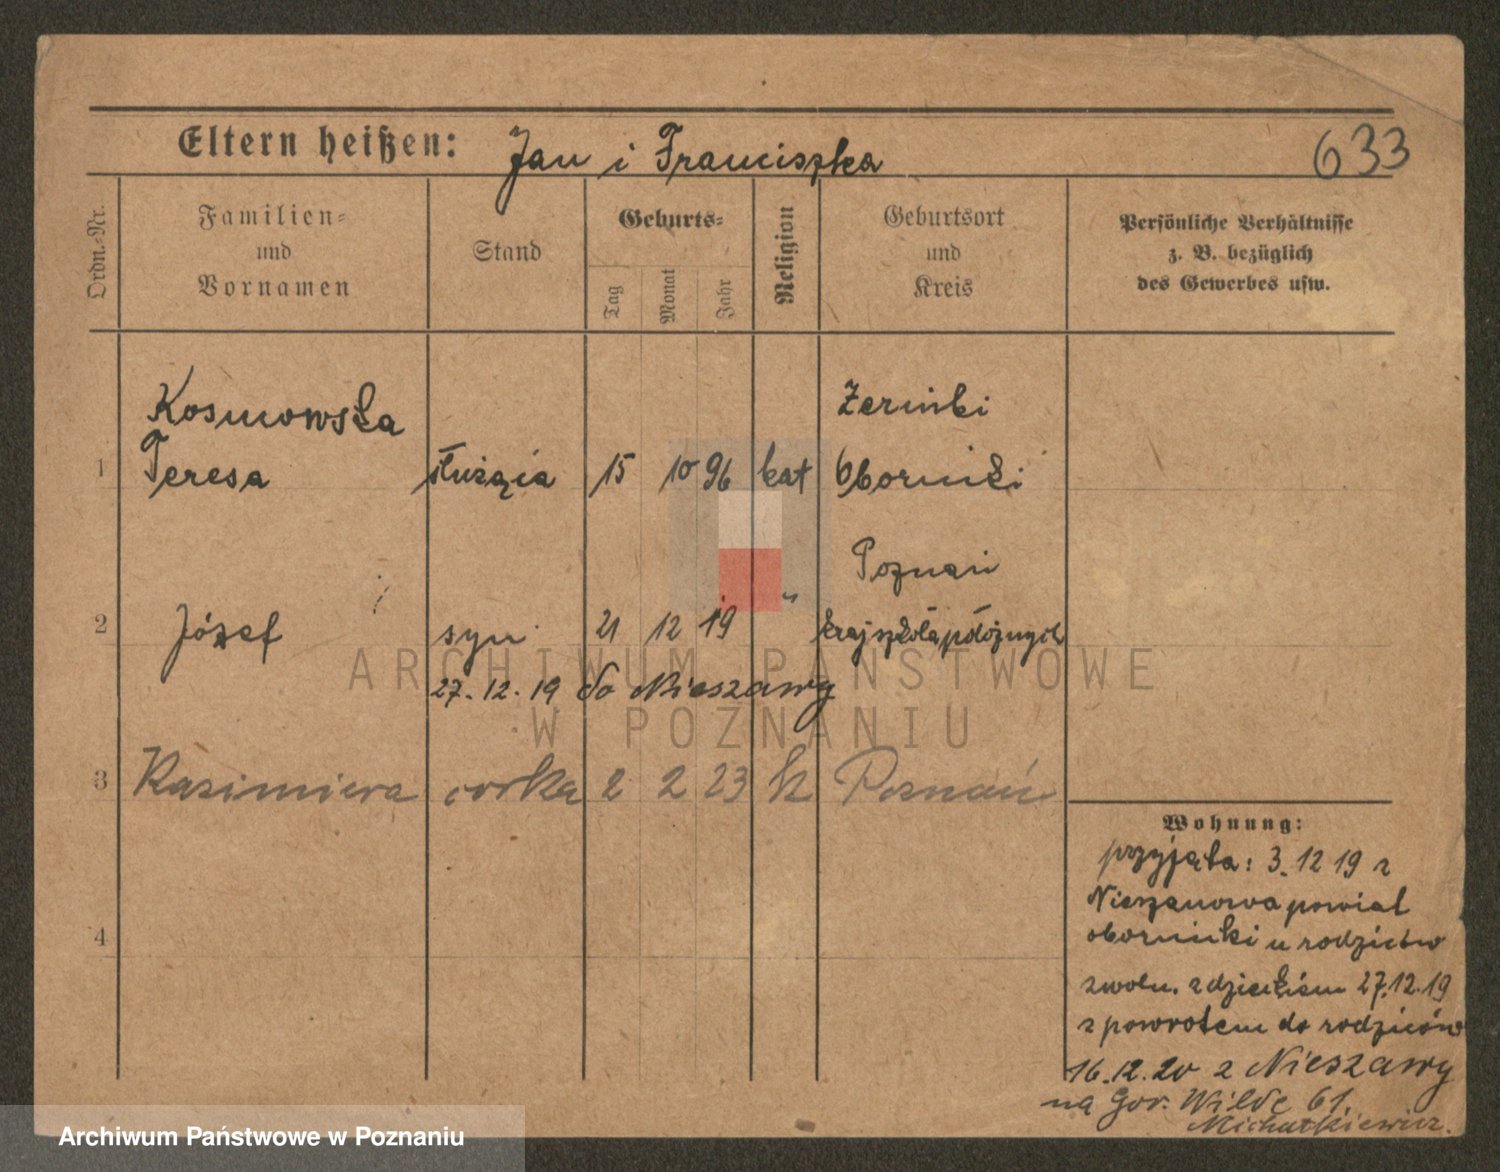 Eltern heißen: Jan i Franciszka
633
Ordn.-Nr.
Familien-
und
Vornamen
Stand
Geburts-
Tag
Monat
Jahr
Religion
Geburtsort
und
Kreis
Persönliche Verhältnisse
z. B. bezüglich
des Gewerbes usw.
Kosmowska Żerniki
1 Teresa służąca 15 10 96 kat Oborniki
Poznań
2 Józef syn 21 12 19 " kraj szkoła położnych
27.12.19 do Nieszawy
3 Kazimiera córka 2 2 23 k Poznań
4
Wohnung:
przyjęta: 3.12 19 z
Nieszanowa powiat
obornicki u rodziców
zwoln. z dzieckiem 27.12.19
z powrotem do rodziców
16.12.20 z Nieszawy
na Gór. Wildę 61.
Michałkiewicz.
ARCHIWUM PAŃSTWOWE
W POZNANIU
Archiwum Państwowe w Poznaniu